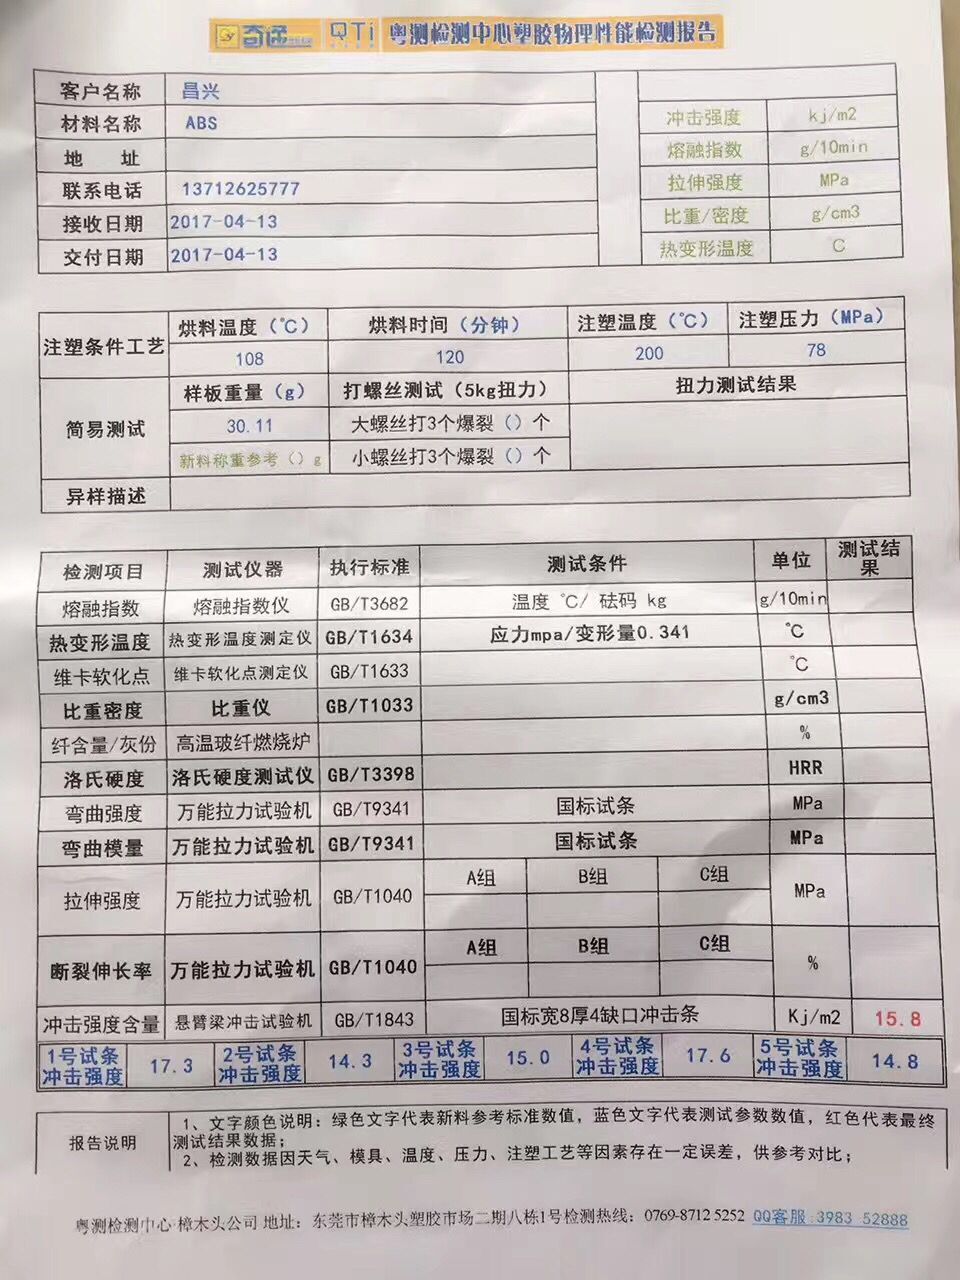 奇遞 QTi 粤测检测中心塑胶物理性能检测报告
客户名称 昌兴
材料名称 ABS 冲击强度 kj/m2
地 址 熔融指数 g/10min
联系电话 13712625777 拉伸强度 MPa
接收日期 2017-04-13 比重/密度 g/cm3
交付日期 2017-04-13 热变形温度 C
注塑条件工艺 烘料温度（℃） 烘料时间（分钟） 注塑温度（℃） 注塑压力（MPa）
108 120 200 78
简易测试 样板重量（g） 打螺丝测试（5kg扭力） 扭力测试结果
30.11 大螺丝打3个爆裂（）个
新料称重参考（）g 小螺丝打3个爆裂（）个
异样描述
检测项目 测试仪器 执行标准 测试条件 单位 测试结果
熔融指数 熔融指数仪 GB/T3682 温度 ℃/ 砝码 kg g/10min
热变形温度 热变形温度测定仪 GB/T1634 应力mpa/变形量0.341 ℃
维卡软化点 维卡软化点测定仪 GB/T1633 ℃
比重密度 比重仪 GB/T1033 g/cm3
纤含量/灰份 高温玻纤燃烧炉 %
洛氏硬度 洛氏硬度测试仪 GB/T3398 HRR
弯曲强度 万能拉力试验机 GB/T9341 国标试条 MPa
弯曲模量 万能拉力试验机 GB/T9341 国标试条 MPa
拉伸强度 万能拉力试验机 GB/T1040 A组 B组 C组 MPa
断裂伸长率 万能拉力试验机 GB/T1040 A组 B组 C组 %
冲击强度含量 悬臂梁冲击试验机 GB/T1843 国标宽8厚4缺口冲击条 Kj/m2 15.8
1号试条冲击强度 17.3 2号试条冲击强度 14.3 3号试条冲击强度 15.0 4号试条冲击强度 17.6 5号试条冲击强度 14.8
报告说明 1、文字颜色说明：绿色文字代表新料参考标准数值，蓝色文字代表测试参数数值，红色代表最终
测试结果数据；
2、检测数据因天气、模具、温度、压力、注塑工艺等因素存在一定误差，供参考对比；
粤测检测中心·樟木头公司 地址：东莞市樟木头塑胶市场二期八栋1号检测热线：0769-8712 5252 QQ客服:3983 52888